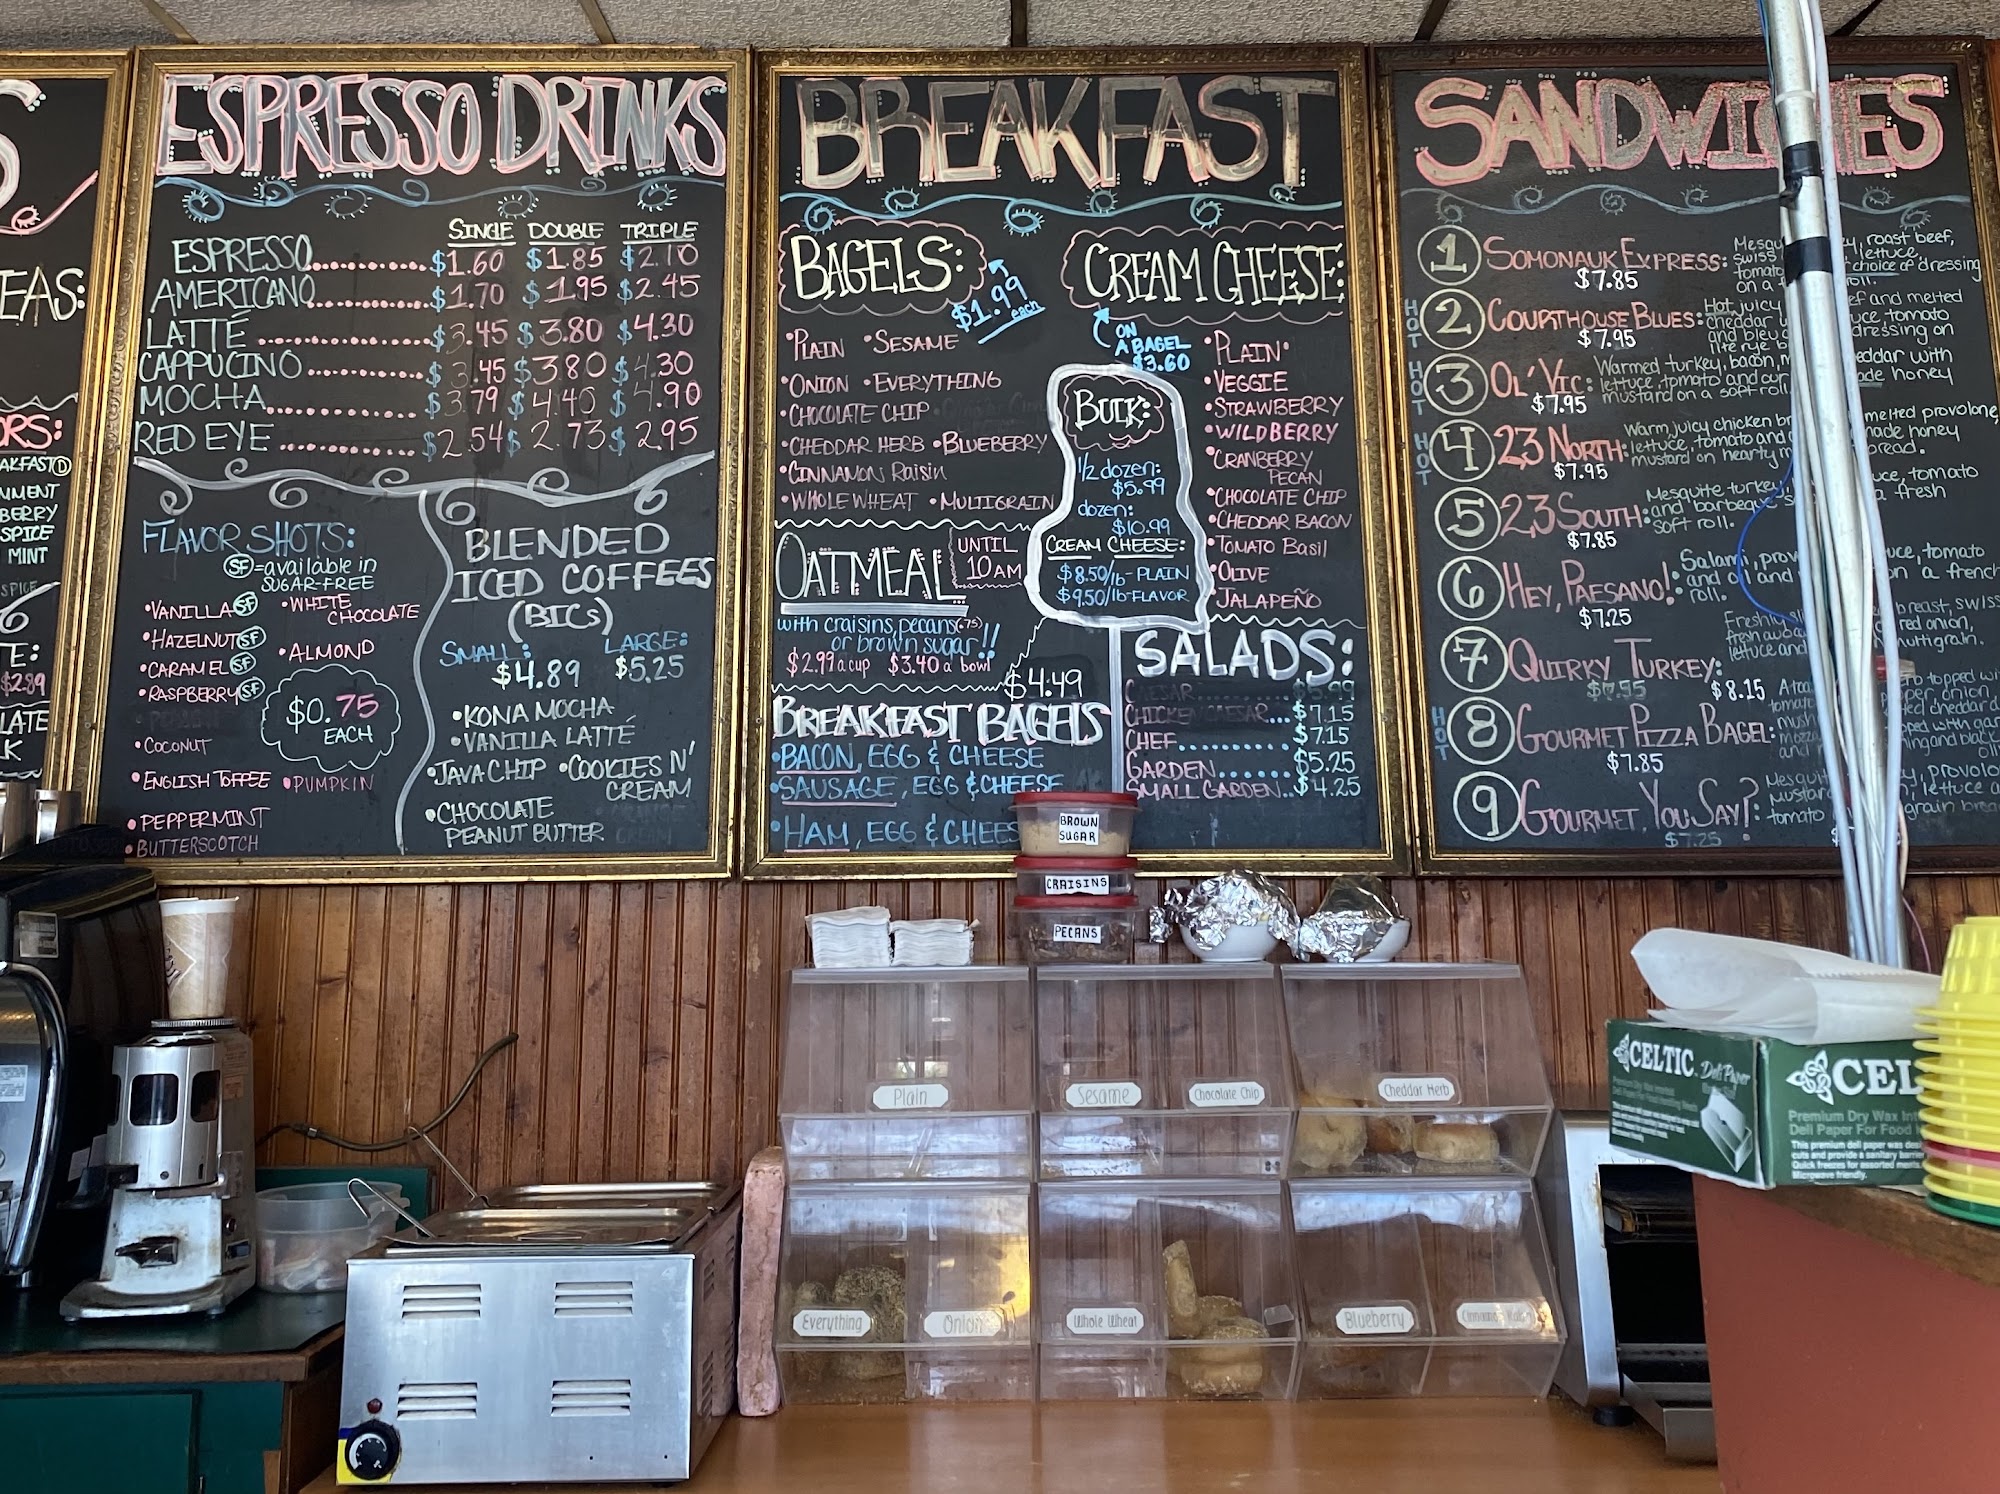 S
EAS:
ORS:
AKFAST D
NMENT
BERRY
SPICE
MINT
SPICE
TE:
$2.89
LATE
K
ESPRESSO DRINKS
SINGLE DOUBLE TRIPLE
ESPRESSO $1.60 $1.85 $2.10
AMERICANO $1.70 $1.95 $2.45
LATTÉ $3.45 $3.80 $4.30
CAPPUCINO $3.45 $3.80 $4.30
MOCHA $3.79 $4.40 $4.90
RED EYE $2.54 $2.73 $2.95
FLAVOR SHOTS:
SF = available in
SUGAR-FREE
•VANILLA SF •WHITE CHOCOLATE
•HAZELNUT SF
•ALMOND
•CARAMEL SF
•RASPBERRY SF
$0.75
EACH
•COCONUT
•ENGLISH TOFFEE •PUMPKIN
•PEPPERMINT
•BUTTERSCOTCH
BLENDED
ICED COFFEES
(BICs)
SMALL: LARGE:
$4.89 $5.25
•KONA MOCHA
•VANILLA LATTÉ
•JAVA CHIP •COOKIES N'
CREAM
•CHOCOLATE
PEANUT BUTTER
BREAKFAST
BAGELS:
$1.99
each
•PLAIN •SESAME
•ONION •EVERYTHING
•CHOCOLATE CHIP
•CHEDDAR HERB •BLUEBERRY
•CINNAMON RAISIN
•WHOLE WHEAT •MULTIGRAIN
CREAM CHEESE:
ON
A BAGEL
$3.60
•PLAIN•
•VEGGIE
•STRAWBERRY
•WILDBERRY
•CRANBERRY
PECAN
•CHOCOLATE CHIP
•CHEDDAR BACON
•TOMATO BASIL
•OLIVE
•JALAPEÑO
BULK:
1/2 dozen:
$5.99
dozen:
$10.99
CREAM CHEESE:
$8.50/lb-PLAIN
$9.50/lb-FLAVOR
OATMEAL
UNTIL
10 AM
with craisins, pecans (.75)
or brown sugar!!
$2.99 a cup $3.40 a bowl
$4.49
BREAKFAST BAGELS
•BACON, EGG & CHEESE
•SAUSAGE, EGG & CHEESE
•HAM, EGG & CHEES
SALADS:
CAESAR $5.99
CHICKEN CAESAR $7.15
CHEF $7.15
GARDEN $5.25
SMALL GARDEN $4.25
SANDWICHES
1 SOMONAUK EXPRESS: Mesqu y, roast beef,
swiss lettuce,
tomato choice of dressing
on a roll.
$7.85
HOT
2 COURTHOUSE BLUES: Hot, juicy ef and melted
cheddar uce tomato
and bleu dressing on
lite rye
$7.95
HOT
3 OL' VIC: Warmed turkey, bacon, eddar with
lettuce, tomato and our ade honey
mustard on a soft roll.
$7.95
HOT
4 23 NORTH: Warm, juicy chicken br melted provolone,
lettuce, tomato and ade honey
mustard on hearty bread.
$7.95
5 23 SOUTH: Mesquite turkey uce, tomato
and barbeque a fresh
soft roll.
$7.85
6 HEY, PAESANO!: Salami, prov uce, tomato
and oil and on a french
roll.
$7.25
7 QUIRKY TURKEY: Freshly sli breast, swiss
fresh avoca red onion,
lettuce and multigrain.
$7.55 $8.15
HOT
8 GOURMET PIZZA BAGEL: topped wi
tomato per, onion
mush ed cheddar
mozz pped with gar
and ing and black
oli
$7.85
9 GOURMET, YOU SAY?: Mesquit y, provolo
mustar , lettuce a
tomato grain brea
$7.25
BROWN
SUGAR
CRAISINS
PECANS
Plain
Sesame
Chocolate Chip
Cheddar Herb
Everything
Onion
Whole Wheat
Blueberry
Cinnamon Raisin
CELTIC Deli Paper
CEL
Premium Dry Wax Int
Deli Paper For Food
This premium deli paper was des
cuts and provide a sanitary barrier
Quick freezes for assorted meats,
Microwave friendly.